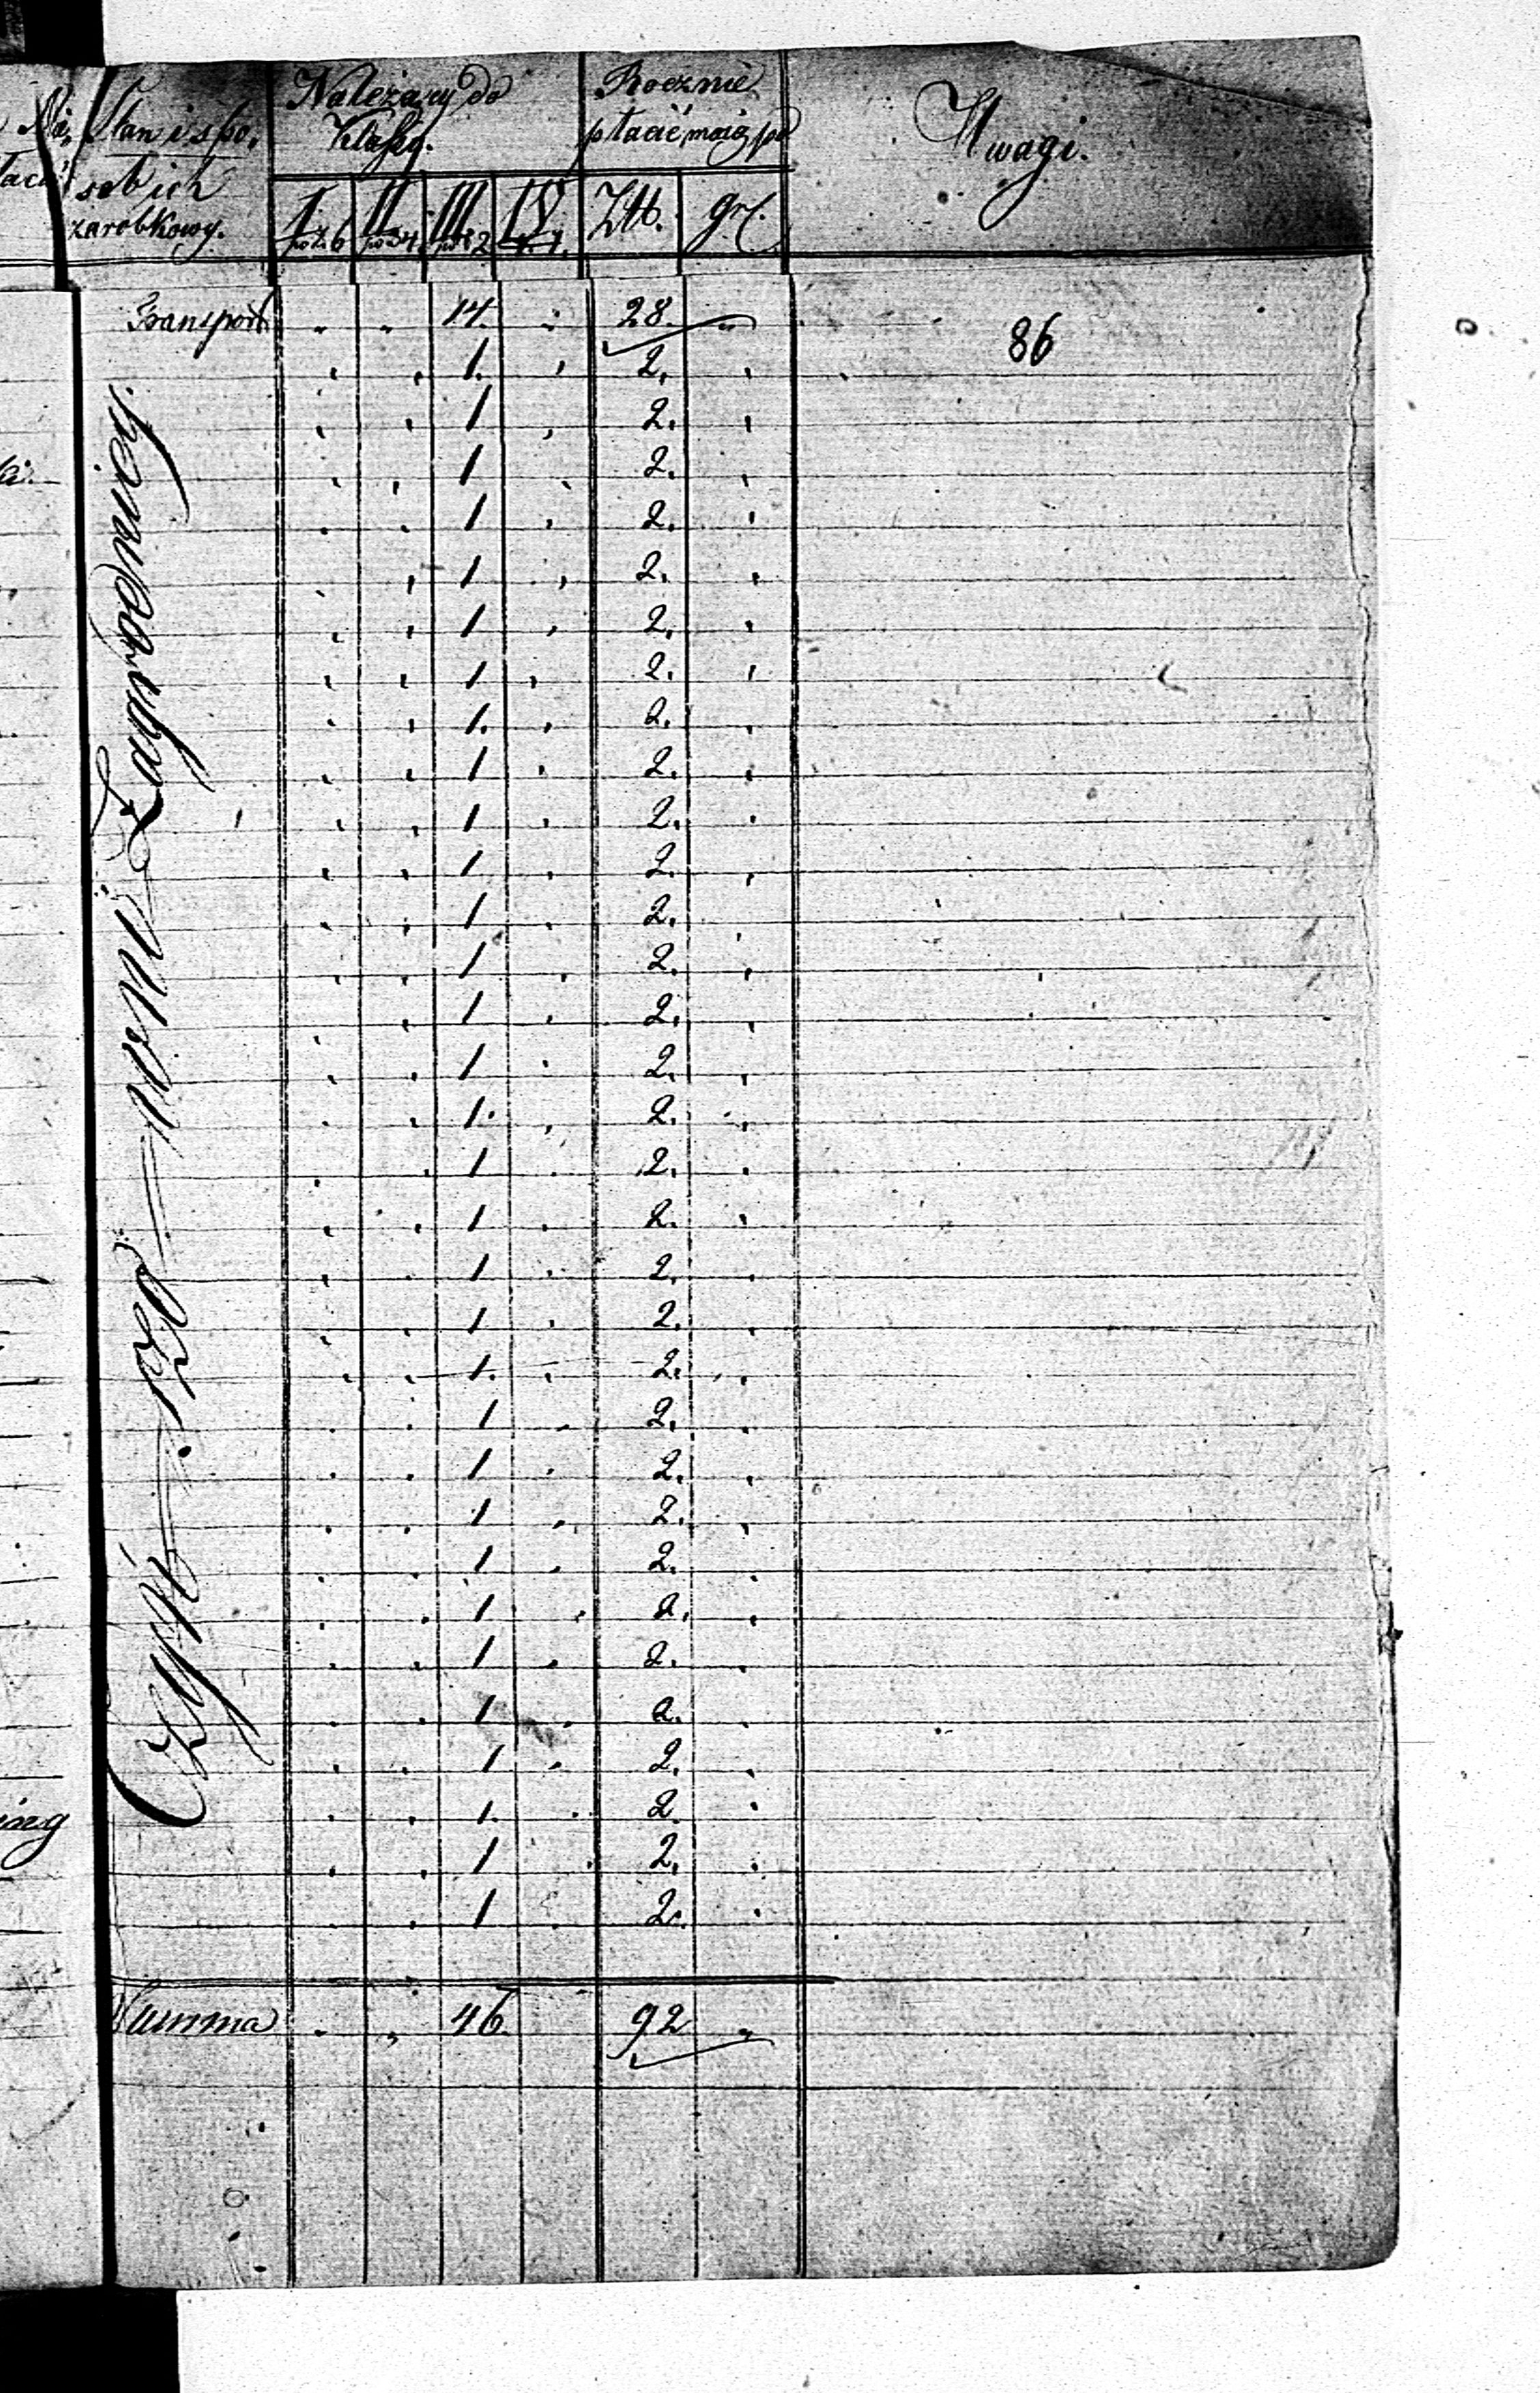 Stan i spo,
sob ich
zarobkowy.
Należący do
Klassy.
I II III IV
po zł 6 po zł 4 po zł 2
Rocznie
płacić maią po
Złł. gr.
Uwagi.
Transport „ „ 14. „ 28. „
86
1. 2.
1 2.
1 2.
1 2.
1 2.
1 2.
1 2.
1. 2.
1 2.
1 2.
1 2.
1 2.
1 2.
1 2.
1 2.
1. 2.
1 2.
1 2.
1 2.
1 2.
1. 2.
1 2.
1 2.
1 2.
1 2.
1 2.
1 2.
1 2.
1 2.
1. 2
1 2.
1 2.
Czyli Zagrodnicy
Summa „ „ 46. 92 „